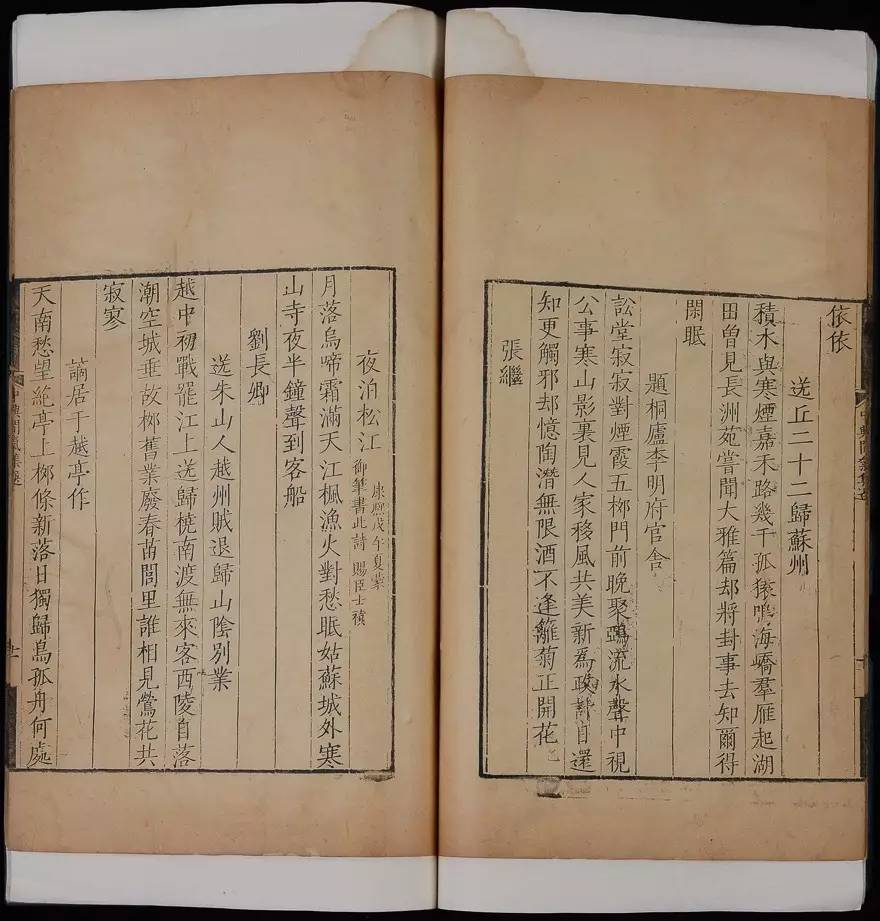 依依
送丘二十二歸蘇州
積水與寒煙嘉禾路幾千孤猿鳴海嶠羣雁起湖
田曾見長洲苑嘗聞大雅篇却將封事去知爾得
閑眠
題桐廬李明府官舍
訟堂寂寂對煙霞五桺門前晚聚鵶流水聲中視
公事寒山影裏見人家移風共美新為政計自還
知更觸邪却憶陶潛無限酒不逢籬菊正開花
張繼
夜泊松江
康熙戊午夏蒙
御筆書此詩 賜臣士禎
月落烏啼霜滿天江楓漁火對愁眠姑蘇城外寒
山寺夜半鐘聲到客船
劉長卿
送朱山人越州賊退歸山陰別業
越中初戰罷江上送歸橈南渡無來客西陵自落
潮空城垂故桺舊業廢春苗閭里誰相見鶯花共
寂寥
謫居于越亭作
天南愁望絶亭上桺條新落日獨歸鳥孤舟何處